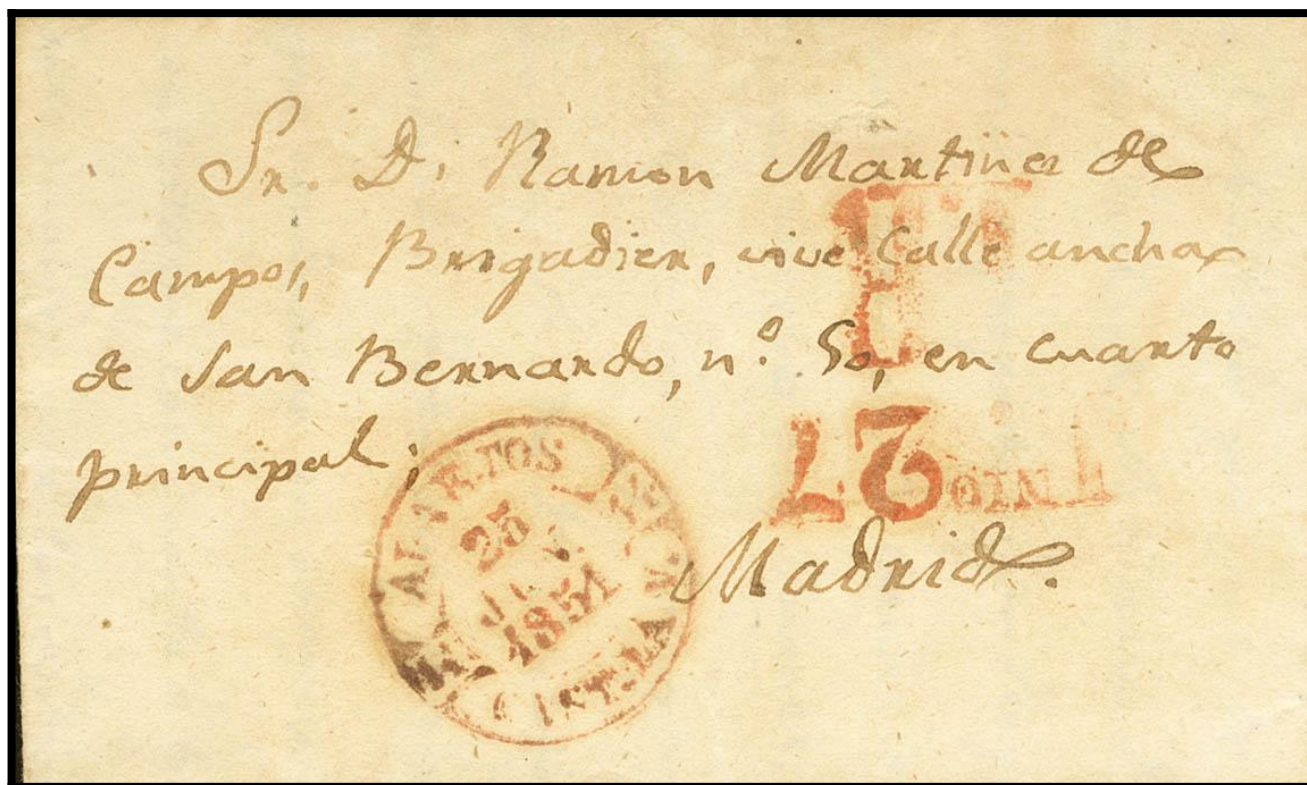 Sr. D. Ramon Martinez de
Campos, Brigadier, vive Calle ancha
de San Bernardo, nº 50, en cuarto
principal;
Madrid.
25
1851
27